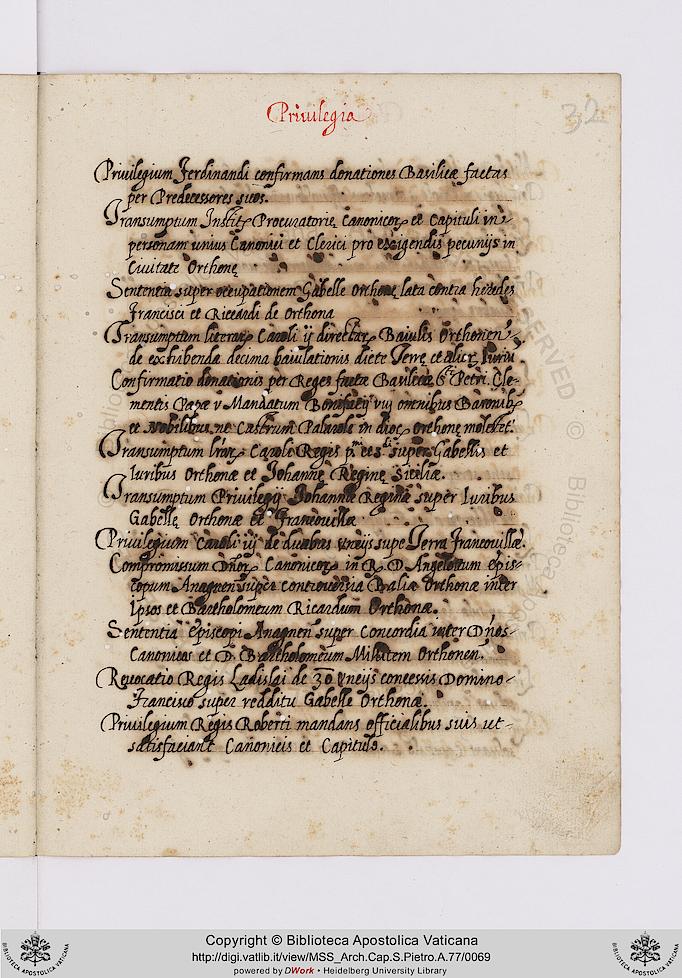 Priuilegia
32
Priuilegium Ferdinandi confirmans donationes Basilicæ factas
per Predecessores suos.
Transumptum Instꝭ Procuratorię Canonicoꝝ et Capituli in
personam unius Canonici et Clerici pro exigendis pecunijs in
Ciuitate Orthonę
Sententia super occupationem Gabelle Orthonę lata contra heredes
Francisci et Riccardi de Orthona
Transumptum literaꝝ Caroli ij directaꝝ Baiulis Orthonen
de exhibenda decima baiulationis dictę Terrę et alioꝝ Iuriũ.
Confirmatio donationis per Reges factæ Basilicæ Sti Petri. Cle-
mentis Papæ v Mandatum Bonifacij viij omnibus Baronibꝫ
et Nobilibus ne Castrum Palarole in dioc. Orthonę molestet.
Transumptum lraꝝ Caroli Regis pmi et sdi super Gabellis et
Iuribus Orthonæ et Johannę Reginę Siciliæ.
Transumptum Priuilegij Johannæ Reginæ super Iuribus
Gabellę Orthonæ et Francauillæ
Priuilegium Caroli iij de duabus uncijs supe Terra Francauillæ.
Compromissum Dñoꝝ Canonicoꝝ in R. D. Angelotum Epis-
copum Anagnen super controuersia Baliæ Orthonæ inter
Ipsos et Bartholomeum Ricardum Orthonæ.
Sententia Episcopi Anagnen super Concordia inter Dños
Canonicos et D. Bartholomeum Militem Orthonen.
Reuocatio Regis Ladislai de 30 uncijs concessis Domino
Francisco super redditu Gabelle Orthonæ.
Priuilegium Regis Roberti mandans officialibus suis ut
satisfaciant Canonicis et Capitulo.
Copyright © Biblioteca Apostolica Vaticana
http://digi.vatlib.it/view/MSS_Arch.Cap.S.Pietro.A.77/0069
powered by DWork • Heidelberg University Library